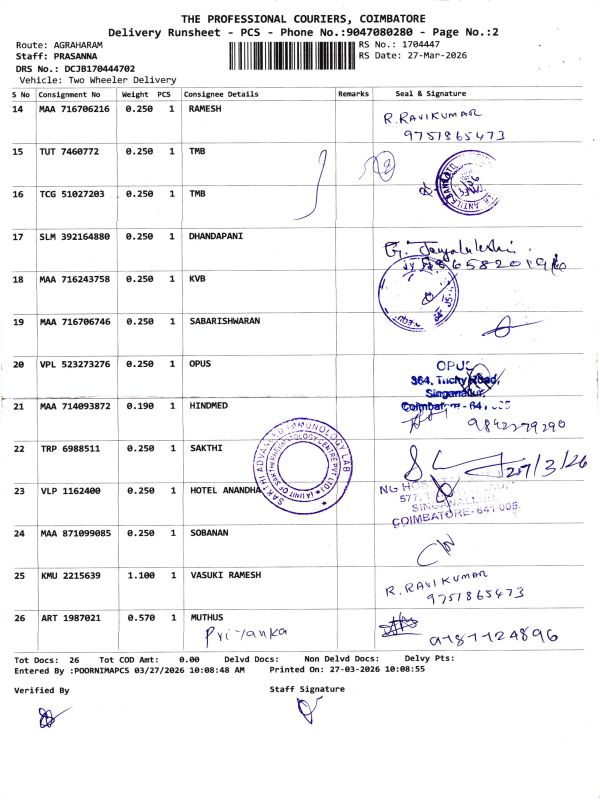 THE PROFESSIONAL COURIERS, COIMBATORE
Delivery Runsheet - PCS - Phone No.:9047080280 - Page No.:2
Route: AGRAHARAM
RS No.: 1704447
Staff: PRASANNA
RS Date: 27-Mar-2026
DRS No.: DCJB170444702
Vehicle: Two Wheeler Delivery
S No Consignment No Weight PCS Consignee Details Remarks Seal & Signature
14 MAA 716706216 0.250 1 RAMESH
R.RAVIKUMAR
9751865473
15 TUT 7460772 0.250 1 TMB
16 TCG 51027203 0.250 1 TMB
17 SLM 392164880 0.250 1 DHANDAPANI
18 MAA 716243758 0.250 1 KVB
19 MAA 716706746 0.250 1 SABARISHWARAN
20 VPL 523273276 0.250 1 OPUS
OPUS
364, Trichy Road,
Singanallur,
Coimbatore - 641 005
21 MAA 714093872 0.190 1 HINDMED
9842279290
22 TRP 6988511 0.250 1 SAKTHI
SAKTHI ADVANCED IMMUNOLOGY LAB
27/3/26
23 VLP 1162400 0.250 1 HOTEL ANANDHA
577,
COIMBATORE- 641 005.
24 MAA 871099085 0.250 1 SOBANAN
25 KMU 2215639 1.100 1 VASUKI RAMESH
R.RAVIKUMAR
9751865473
26 ART 1987021 0.570 1 MUTHUS
Priyanka
9787724896
Tot Docs: 26 Tot COD Amt: 0.00 Delvd Docs: Non Delvd Docs: Delvy Pts:
Entered By :POORNIMAPCS 03/27/2026 10:08:48 AM Printed On: 27-03-2026 10:08:55
Verified By
Staff Signature